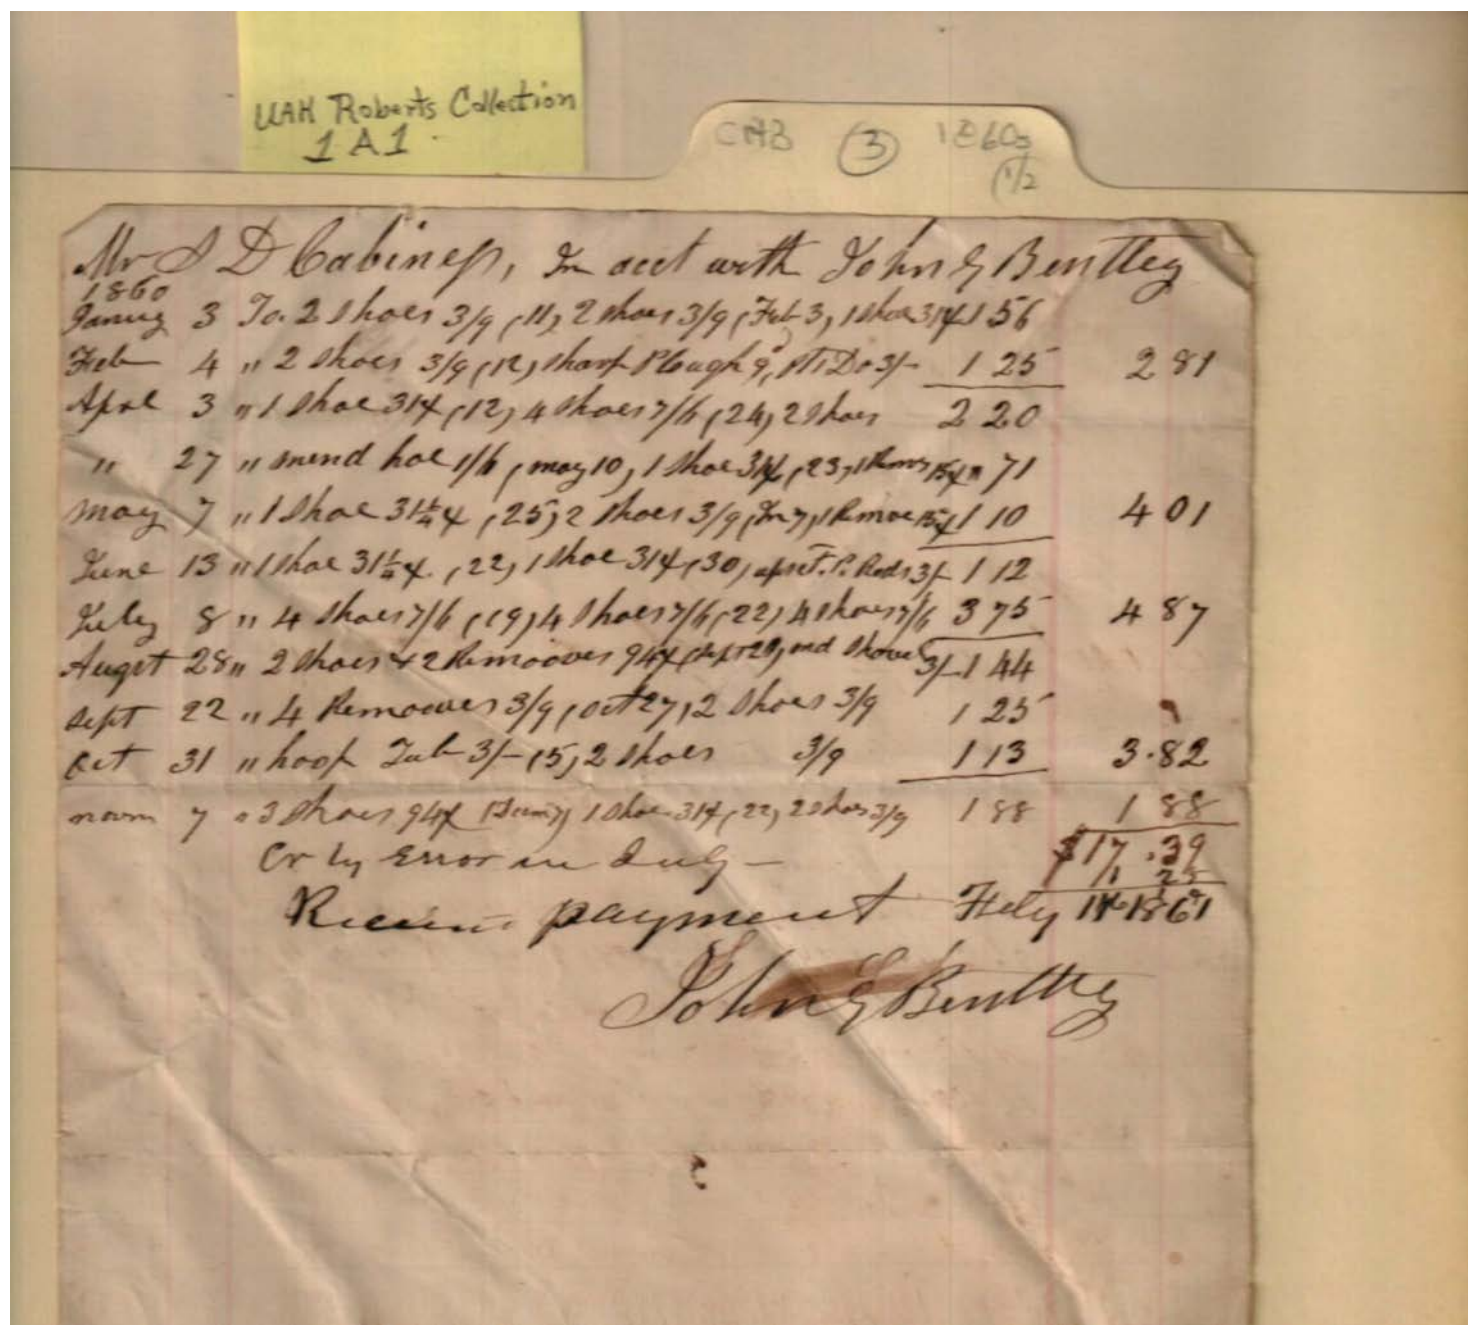 UAH Roberts Collection
1A1
CAB ③ 1860s
(1/2
Mr S D Cabiness, In acct with John G Bentley
1860
January 3 To. 2 Shoes 3/9 (11) 2 shoes 3/9 (Feb 3) 1 Shoe 31¢ 1 56
Feb 4 " 2 Shoes 3/9 (12) sharp Plough 9 Do 3/- 1 25 2 81
April 3 " 1 Shoe 31¢ (12) 4 Shoes 7/6 (24) 2 Shoes 2 20
" 27 " mend hoe 1/6 (may 10) 1 Shoe 31¢ (23) 1 Remov 15¢ " 71
May 7 " 1 Shoe 31¼¢ (25) 2 Shoes 3/9 (Jn 7) 1 Remove 15¢ 1 10 4 01
June 13 " 1 Shoe 31¼¢. (22) 1 Shoe 31¢ (30) upset F. P. Rods 3/- 1 12
July 8 " 4 Shoes 7/6 (19) 4 Shoes 7/6 (22) 4 Shoes 7/6 3 75 4 87
Augst 28 " 2 Shoes & 2 Remooves 94¢ (Sept 20) md Shovel 3/- 1 44
Sept 22 " 4 Remooves 3/9 (Oct 27) 2 Shoes 3/9 1 25
Oct 31 " hoop Tub 3/- (5) 2 Shoes 3/9 1 13 3.82
novm 7 " 3 Shoes 94¢ 1 Shoe 31¢ (22) 2 Shoes 3/9 1 88 1 88
Cr by Error in July — $17.39
1 25
Recium payment Feby 1861
John G Bentley